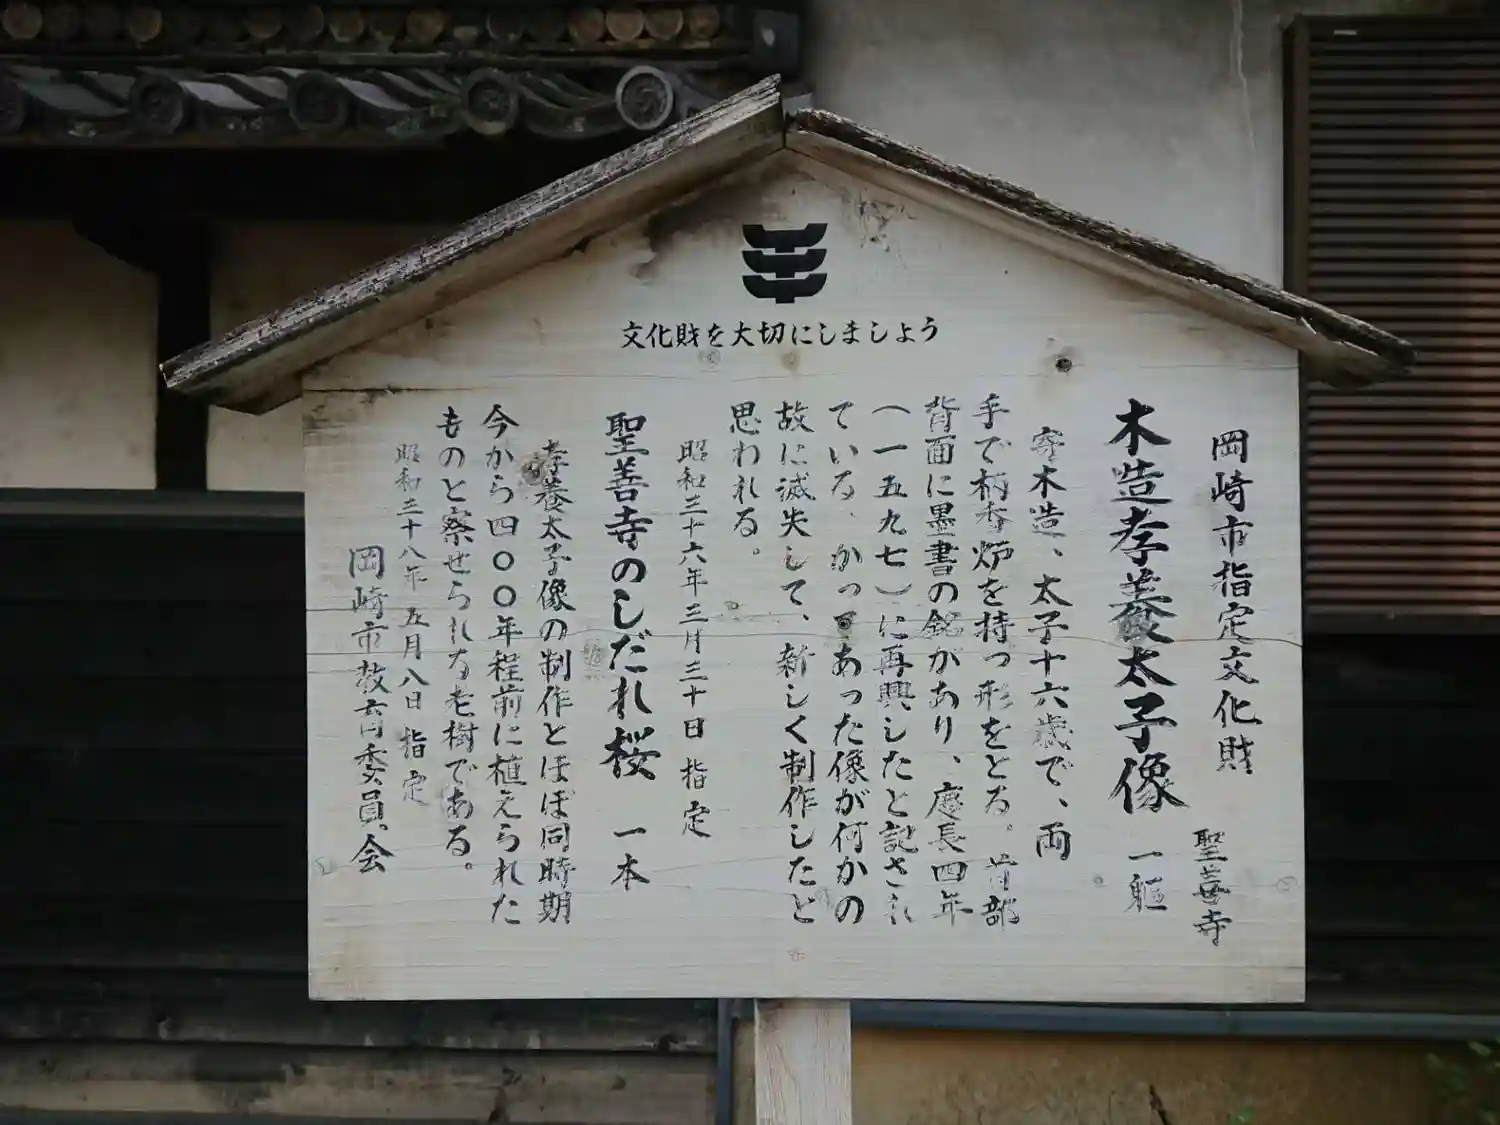 文化財を大切にしましょう
岡崎市指定文化財
聖善寺
木造孝養太子像 一軀
寄木造、太子十六歳で、両
手で柄香炉を持つ形をとる。背部
背面に墨書の銘があり、慶長四年
(一五九七)に再興したと記され
ている、かつてあった像が何かの
故に滅失して、新しく制作したと
思われる。
昭和三十六年三月三十日指定
聖善寺のしだれ桜 一本
孝養太子像の制作とほぼ同時期
今から四〇〇年程前に植えられた
ものと察せられる老樹である。
昭和三十八年五月八日指定
岡崎市教育委員会